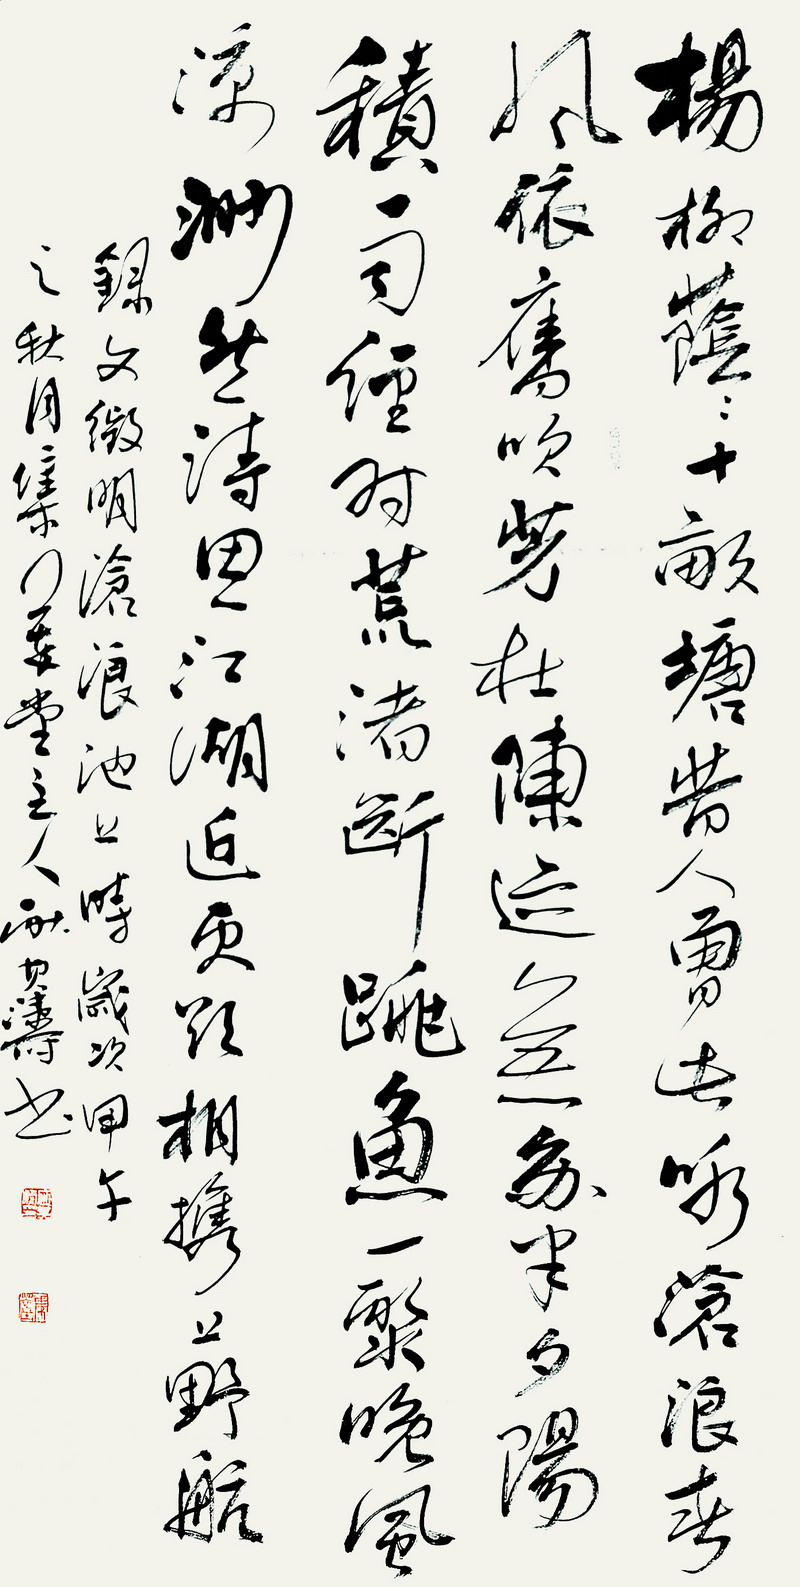 楊柳蔭〻十畝塘昔人曾此咏滄浪春
風依舊吹芳杜陳迹無多半夕陽
積雨經时荒渚斷跳魚一聚晚風
涼渺然詩思江湖近更欲相携上野航
錄文徵明滄浪池上詩歲次甲午
之秋月集堂主人濤书